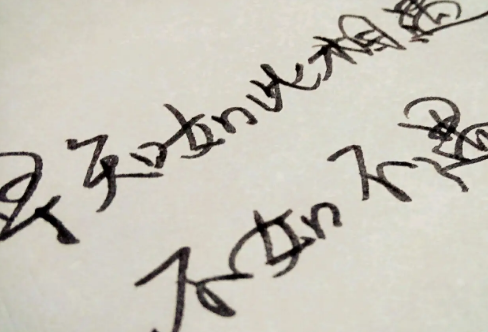 早知如此相遇
不如不遇